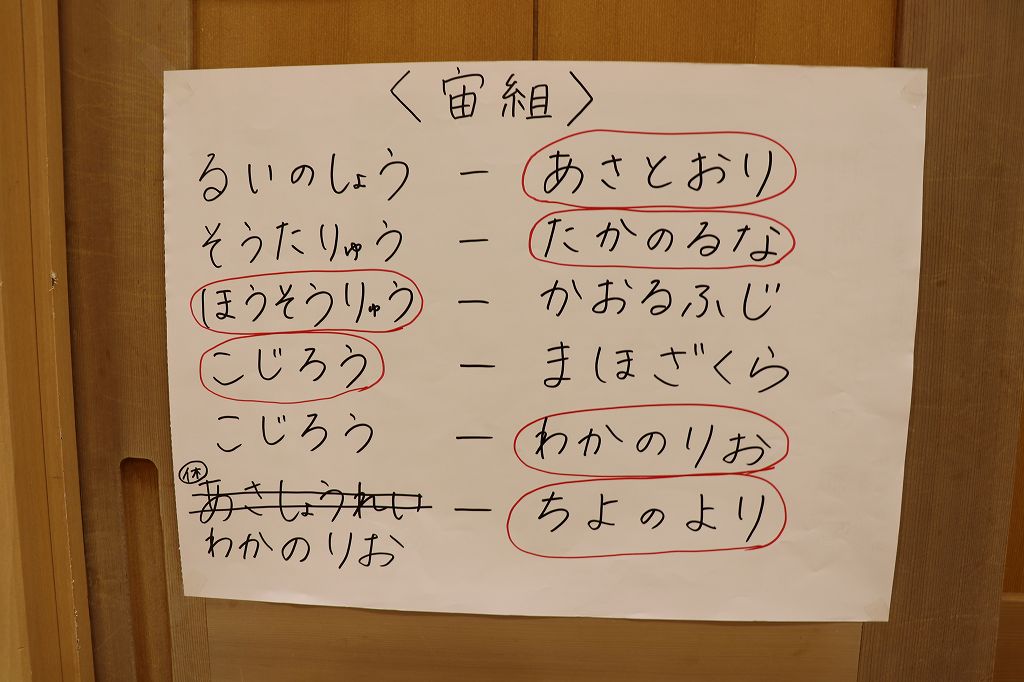 〈宙組〉
るいのしょう ー あさとおり
そうたりゅう ー たかのるな
ほうそうりゅう ー かおるふじ
こじろう ー まほざくら
こじろう ー わかのりお
休
あさしょうれい ー ちよのより
わかのりお